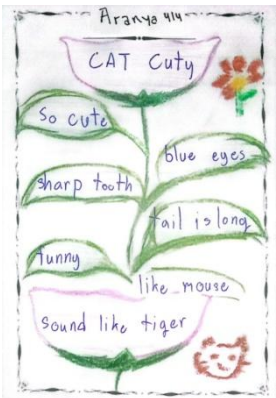 Aranya 4/4
CAT Cuty
So cute
blue eyes
sharp tooth
tail is long
funny
like mouse
sound like tiger